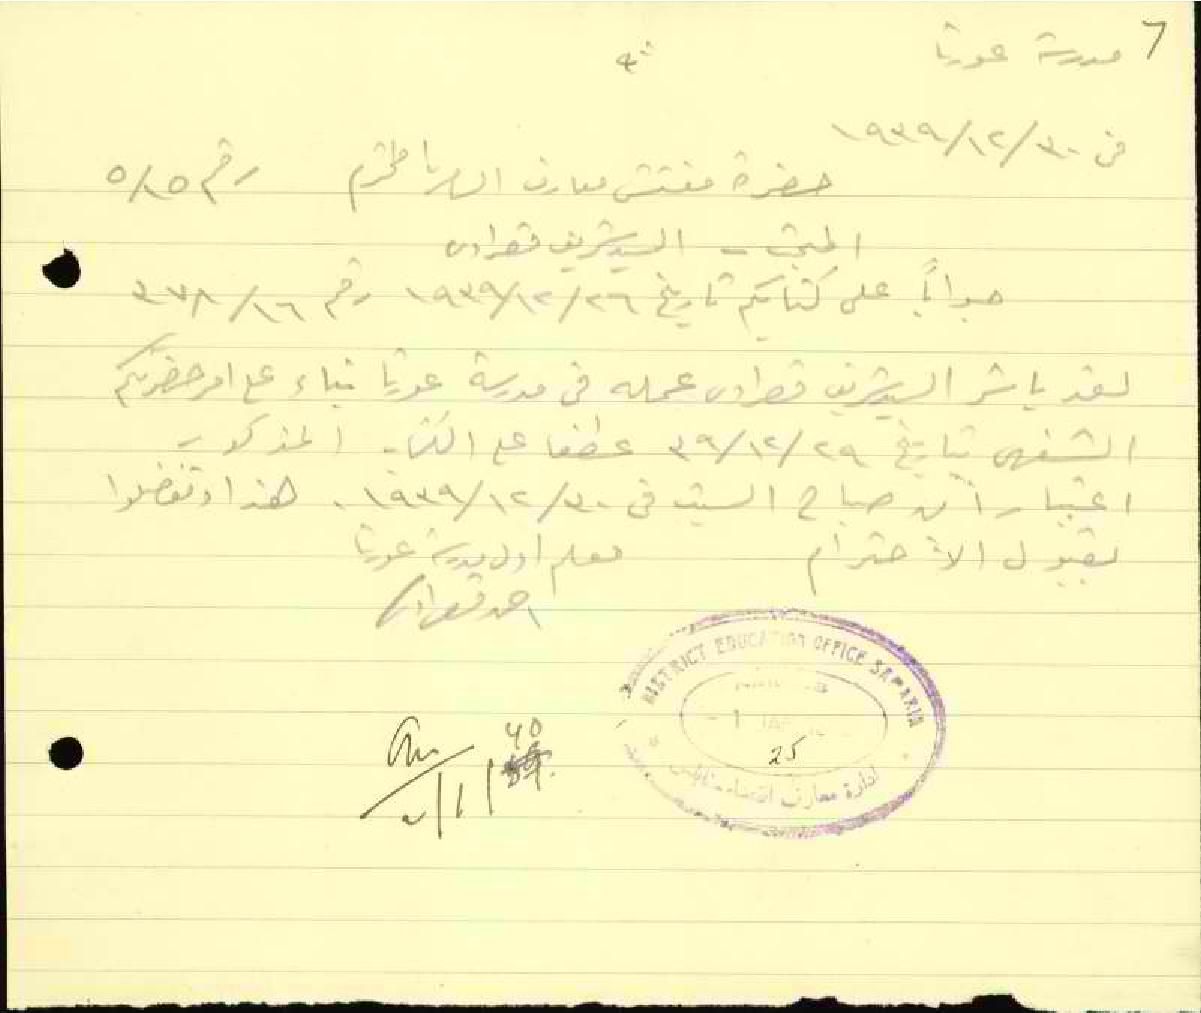 7
مدرسة عورتا
في ٣٠/١٢/١٩٣٩
حضرة مفتش معارف اللواء المحترم رقم ٥/٨٥
المبحث - السيد شريف قصراوي
جواباً على كتابكم تاريخ ٢٦/١٢/١٩٣٩ رقم ١٦/٣٧٨
لقد باشر السيد شريف قصراوي عمله في مدرسة عورتا بناء على امر حضرتكم
الشفهي بتاريخ ٢٩/١٢/٣٩ عطفا على الكتاب المذكور
اعتباراً من صباح السبت في ٣٠/١٢/١٩٣٩. هذا وتفضلوا
بقبول الاحترام معلم اول مدرسة عورتا
احمد
DISTRICT EDUCATION OFFICE SAMARIA
- 1 JAN
25
ادارة معارف
40
2/1/